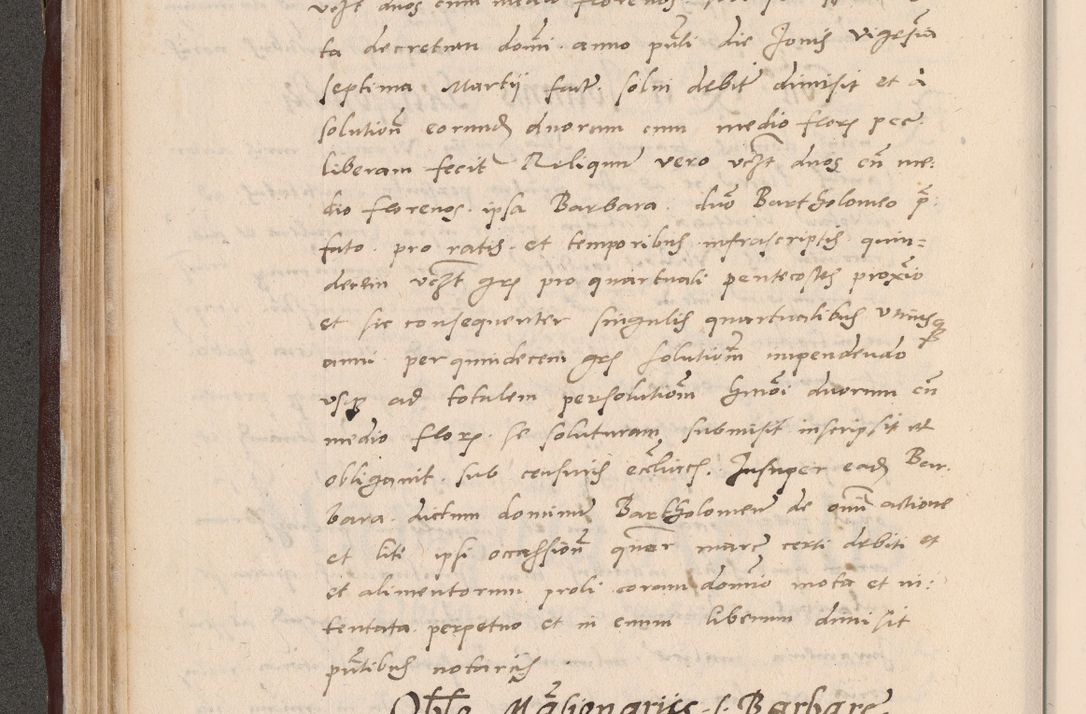 vczt duos cum medio florenos
ta decretum domi. anno pnti die Jovis vigesima
septima Martij factæ. solui debit dimisit et a
solution eorund duorum cum medio flor pec
liberam fecit Reliquum vero vczt duos cu me:
dio florenos. ipsa Barbara. duo Bartholomeo p
fato. pro ratis. et temporibus infrascriptis quin=
decim vczt gros pro quartuali pentecostes proxio
et sic consequenter singulis quartualibus utriusq
anni per quindecem gros solutiom impendendo
usq ad totalem persolutiom hmoi duorum cu
medio flor. se soluturam submisit inscripsit et
obligavit. sub censuris ecclicis. Insuper ead Bar.
bara. dictum dominum Bartholomeum de omni actione
et lite ipsi occassion quar marc certi debiti et
et alimentorum proli coram domio mota et in:
tentata perpetuo et in evum liberum dimisit
pntibus notarijs
Oblo Mansionarijs s. Barbare